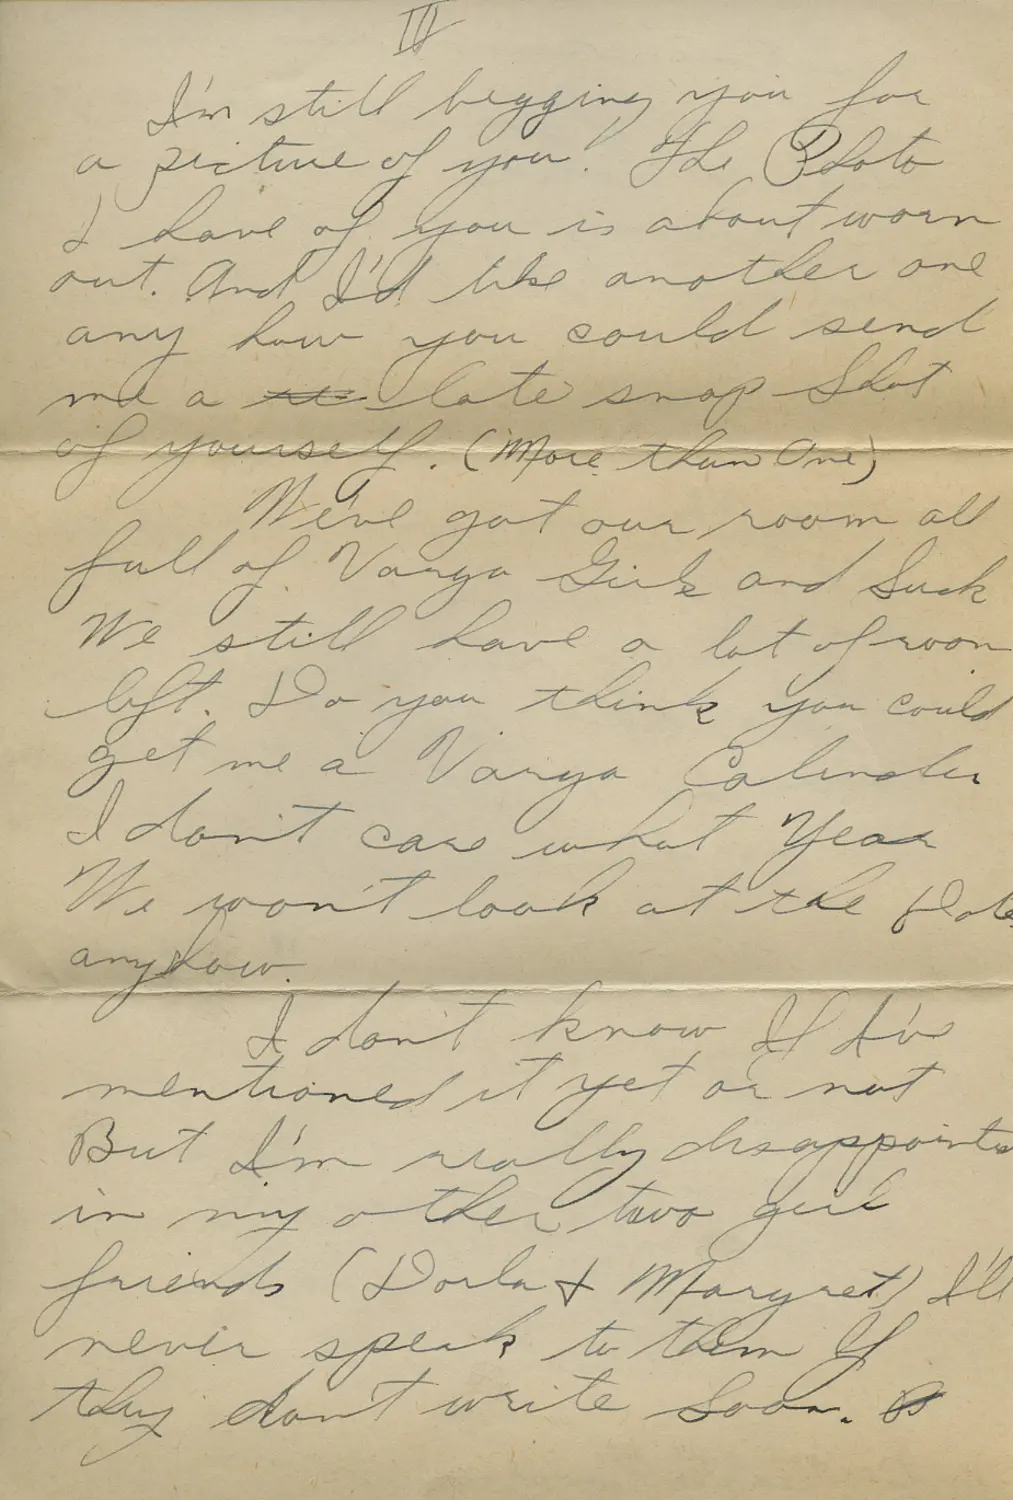 IV
I'm still begging you for
a picture of you! The Photo
I have of you is about worn
out. And I'd like another one
any how you could send
me a late snap Shot
of yourself. (More than One)
We've got our room all
full of Varga Girls and Such
We still have a lot of room
left. Do you think you could
get me a Varga Calender
I don't care what Year
We won't look at the Date
anyhow.
I don't know If I've
mentioned it yet or not
But I'm really disappointed
in my other two girl
friends (Dorla & Margret) I'll
never speak to them If
they don't write Soon.